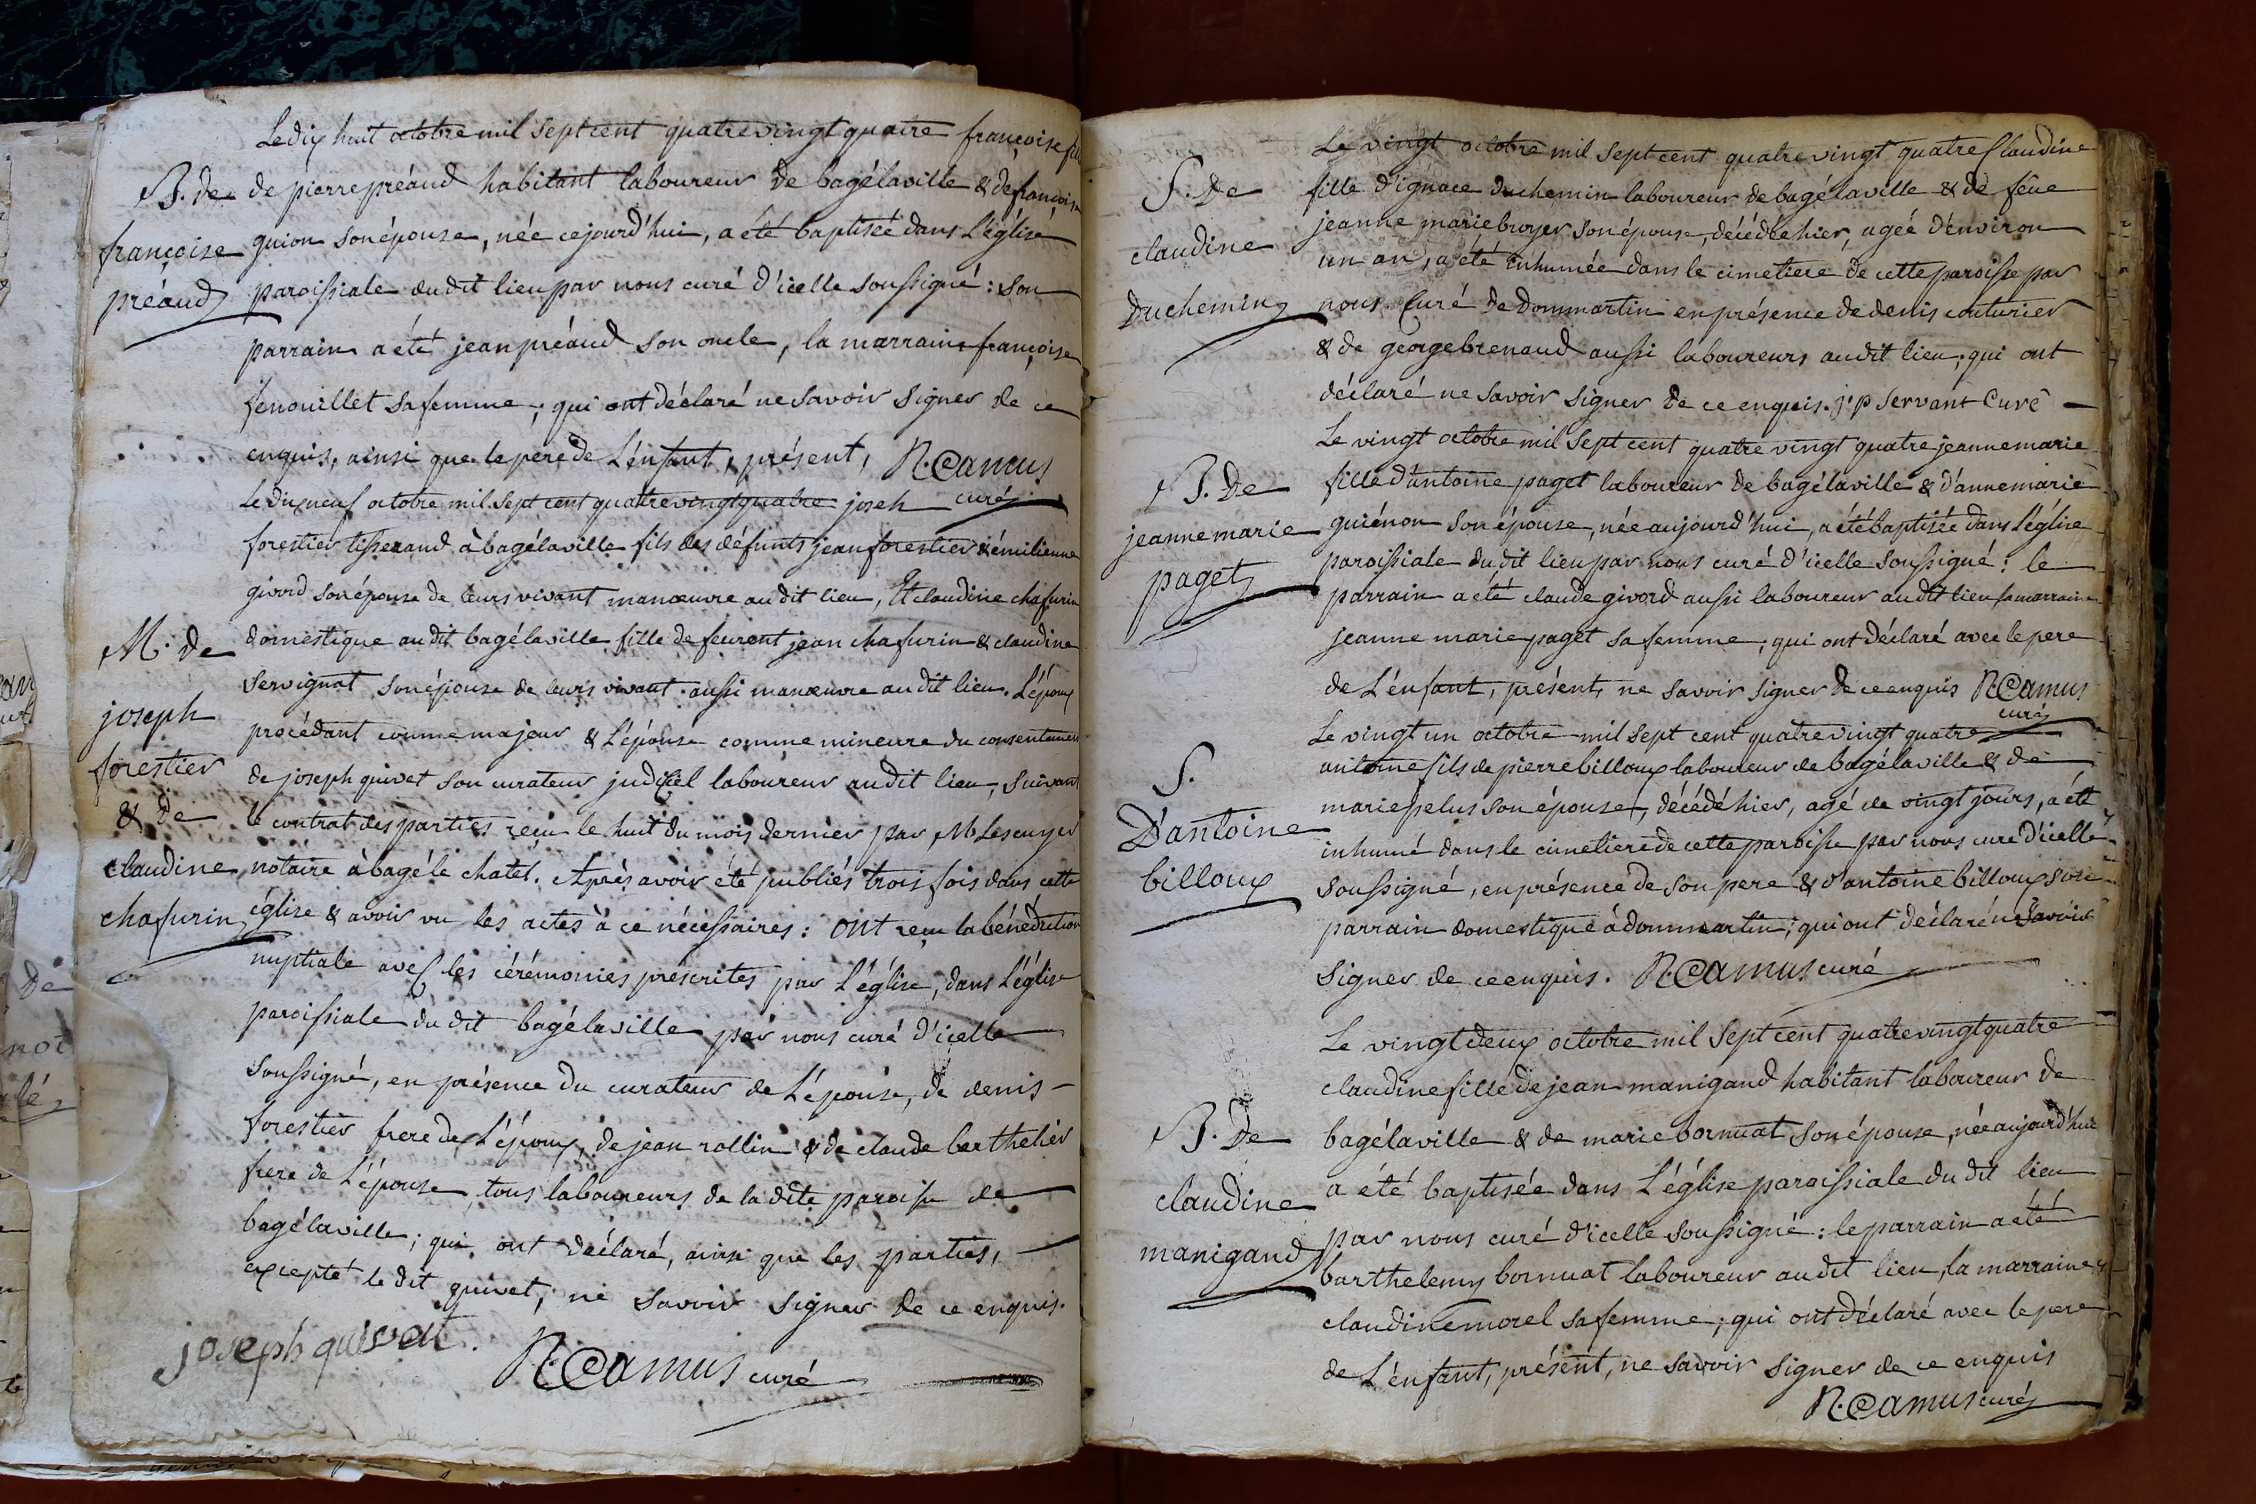 Le dix huit octobre mil sept cent quatre vingt quatre françoise fille
B. de
de pierre préaud habitant laboureur de bagélaville & de françoise
françoise
guion son épouse, née ce jourd'hui, a été baptisée dans L'église
préaud
paroissiale dudit lieu par nous curé d'icelle soussigné : son
parrain a été jean préaud son oncle, la marraine françoise
fenouillet sa femme ; qui ont déclaré ne savoir signer de ce
enquis, ainsi que le pere de L'énfant, présent, N. Camus
curé
Le dix neuf octobre mil sept cent quatre vingt quatre joseh
forestier tisserand à bagélaville fils des défunts jean forestier & émilienne
givord son épouse de leurs vivant manoeuvre au dit lieu, Et claudine chafurin
M. de
domestique au dit bagélaville fille de feuront jean chafurin & claudine
servignat son épouse de leurs vivant aussi manoeuvre au dit lieu. L'époux
joseph
procédant comme majeur & L'épouse comme mineure du consentement
forestier
de joseph quivet son curateur judiciel laboureur au dit lieu, suivant
& de
le contrat des parties reçu le huit du mois dernier par M. Lescuyer
claudine
notaire à bagé le chatel. Après avoir été publiés trois fois dans cette
chafurin
église & avoir vu les actes à ce nécessaires : ont reçu la bénédiction
nuptiale avec les cérémonies préscrites par L'église, dans L'église
paroissiale du dit bagélaville par nous curé d'icelle
soussigné, en présence du curateur de L'épouse, de denis
forestier frere de L'époux, de jean rollin & de claude berthelier
frere de L'épouse, tous laboureurs de la dite paroisse de
bagélaville ; qui ont déclaré, ainsi que les parties,
excepté le dit quivet, ne savoir signer de ce enquis.
joseph quivat.
N. Camus curé
Le vingt octobre mil sept cent quatre vingt quatre Claudine
S. De
fille d'ignace duchemin laboureur de bagélaville & de feüe
claudine
jeanne marie broyer son épouse, décédée hier, agée d'environ
un an, a été inhumée dans le cimetiere de cette paroisse par
Duchemin
nous Curé de dommartin en présence de denis couturier
& de george brenaud aussi laboureurs au dit lieu ; qui ont
déclaré ne savoir signer de ce enquis. j. p servant Curé
Le vingt octobre mil sept cent quatre vingt quatre jeanne marie
B. De
fille d'antoine paget laboureur de bagélaville & d'anne marie
jeanne marie
guiénon son épouse, née aujourd'hui, a été baptisée dans L'église
paget
paroissiale du dit lieu par nous curé d'icelle soussigné : le
parrain a été claude givord aussi laboureur au dit lieu la marraine
jeanne marie paget sa femme ; qui ont déclaré avec le pere
de L'énfant, présent, ne savoir signer de ce enquis N. Camus
curé
Le vingt un octobre mil sept cent quatre vingt quatre
S.
antoine fils de pierre billoux laboureur de bagélaville & de
marie pelus son épouse, décédé hier, agé de vingt jours, a été
D'antoine
inhumé dans le cimetiere de cette paroisse par nous curé d'icelle
billoux
soussigné, en présence de son pere & d'antoine billoux son
parrain domestique à dommartin ; qui ont déclaré ne savoir
signer de ce enquis. N. Camus curé
Le vingt deux octobre mil sept cent quatre vingt quatre
claudine fille de jean manigand habitant laboureur de
B. De
bagélaville & de marie bornuat son épouse, née aujourd'hui
claudine
a été baptisée dans L'église paroissiale du dit lieu
par nous curé d'icelle soussigné : le parrain a été
manigand
barthelemy bornuat laboureur au dit lieu, la marraine
claudine morel sa femme ; qui ont déclaré avec le pere
de L'énfant, présent, ne savoir signer de ce enquis
N. Camus curé